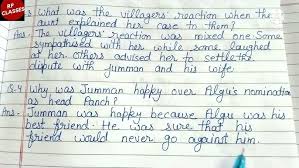 RP
CLASSES
what was the villagers' reaction when the
aunt explained her case to them?
Ans. The villagers' reaction was mixed one. Some
sympathised with her while some laughed
at her. Others advised her to settle the
dispute with Jumman and his wife
Q.4 Why was Jumman happy over Algu's nomination
as head Panch?
Ans- Jumman was happy because Algu was his
best friend. He was sure that his
friend would never go against him.